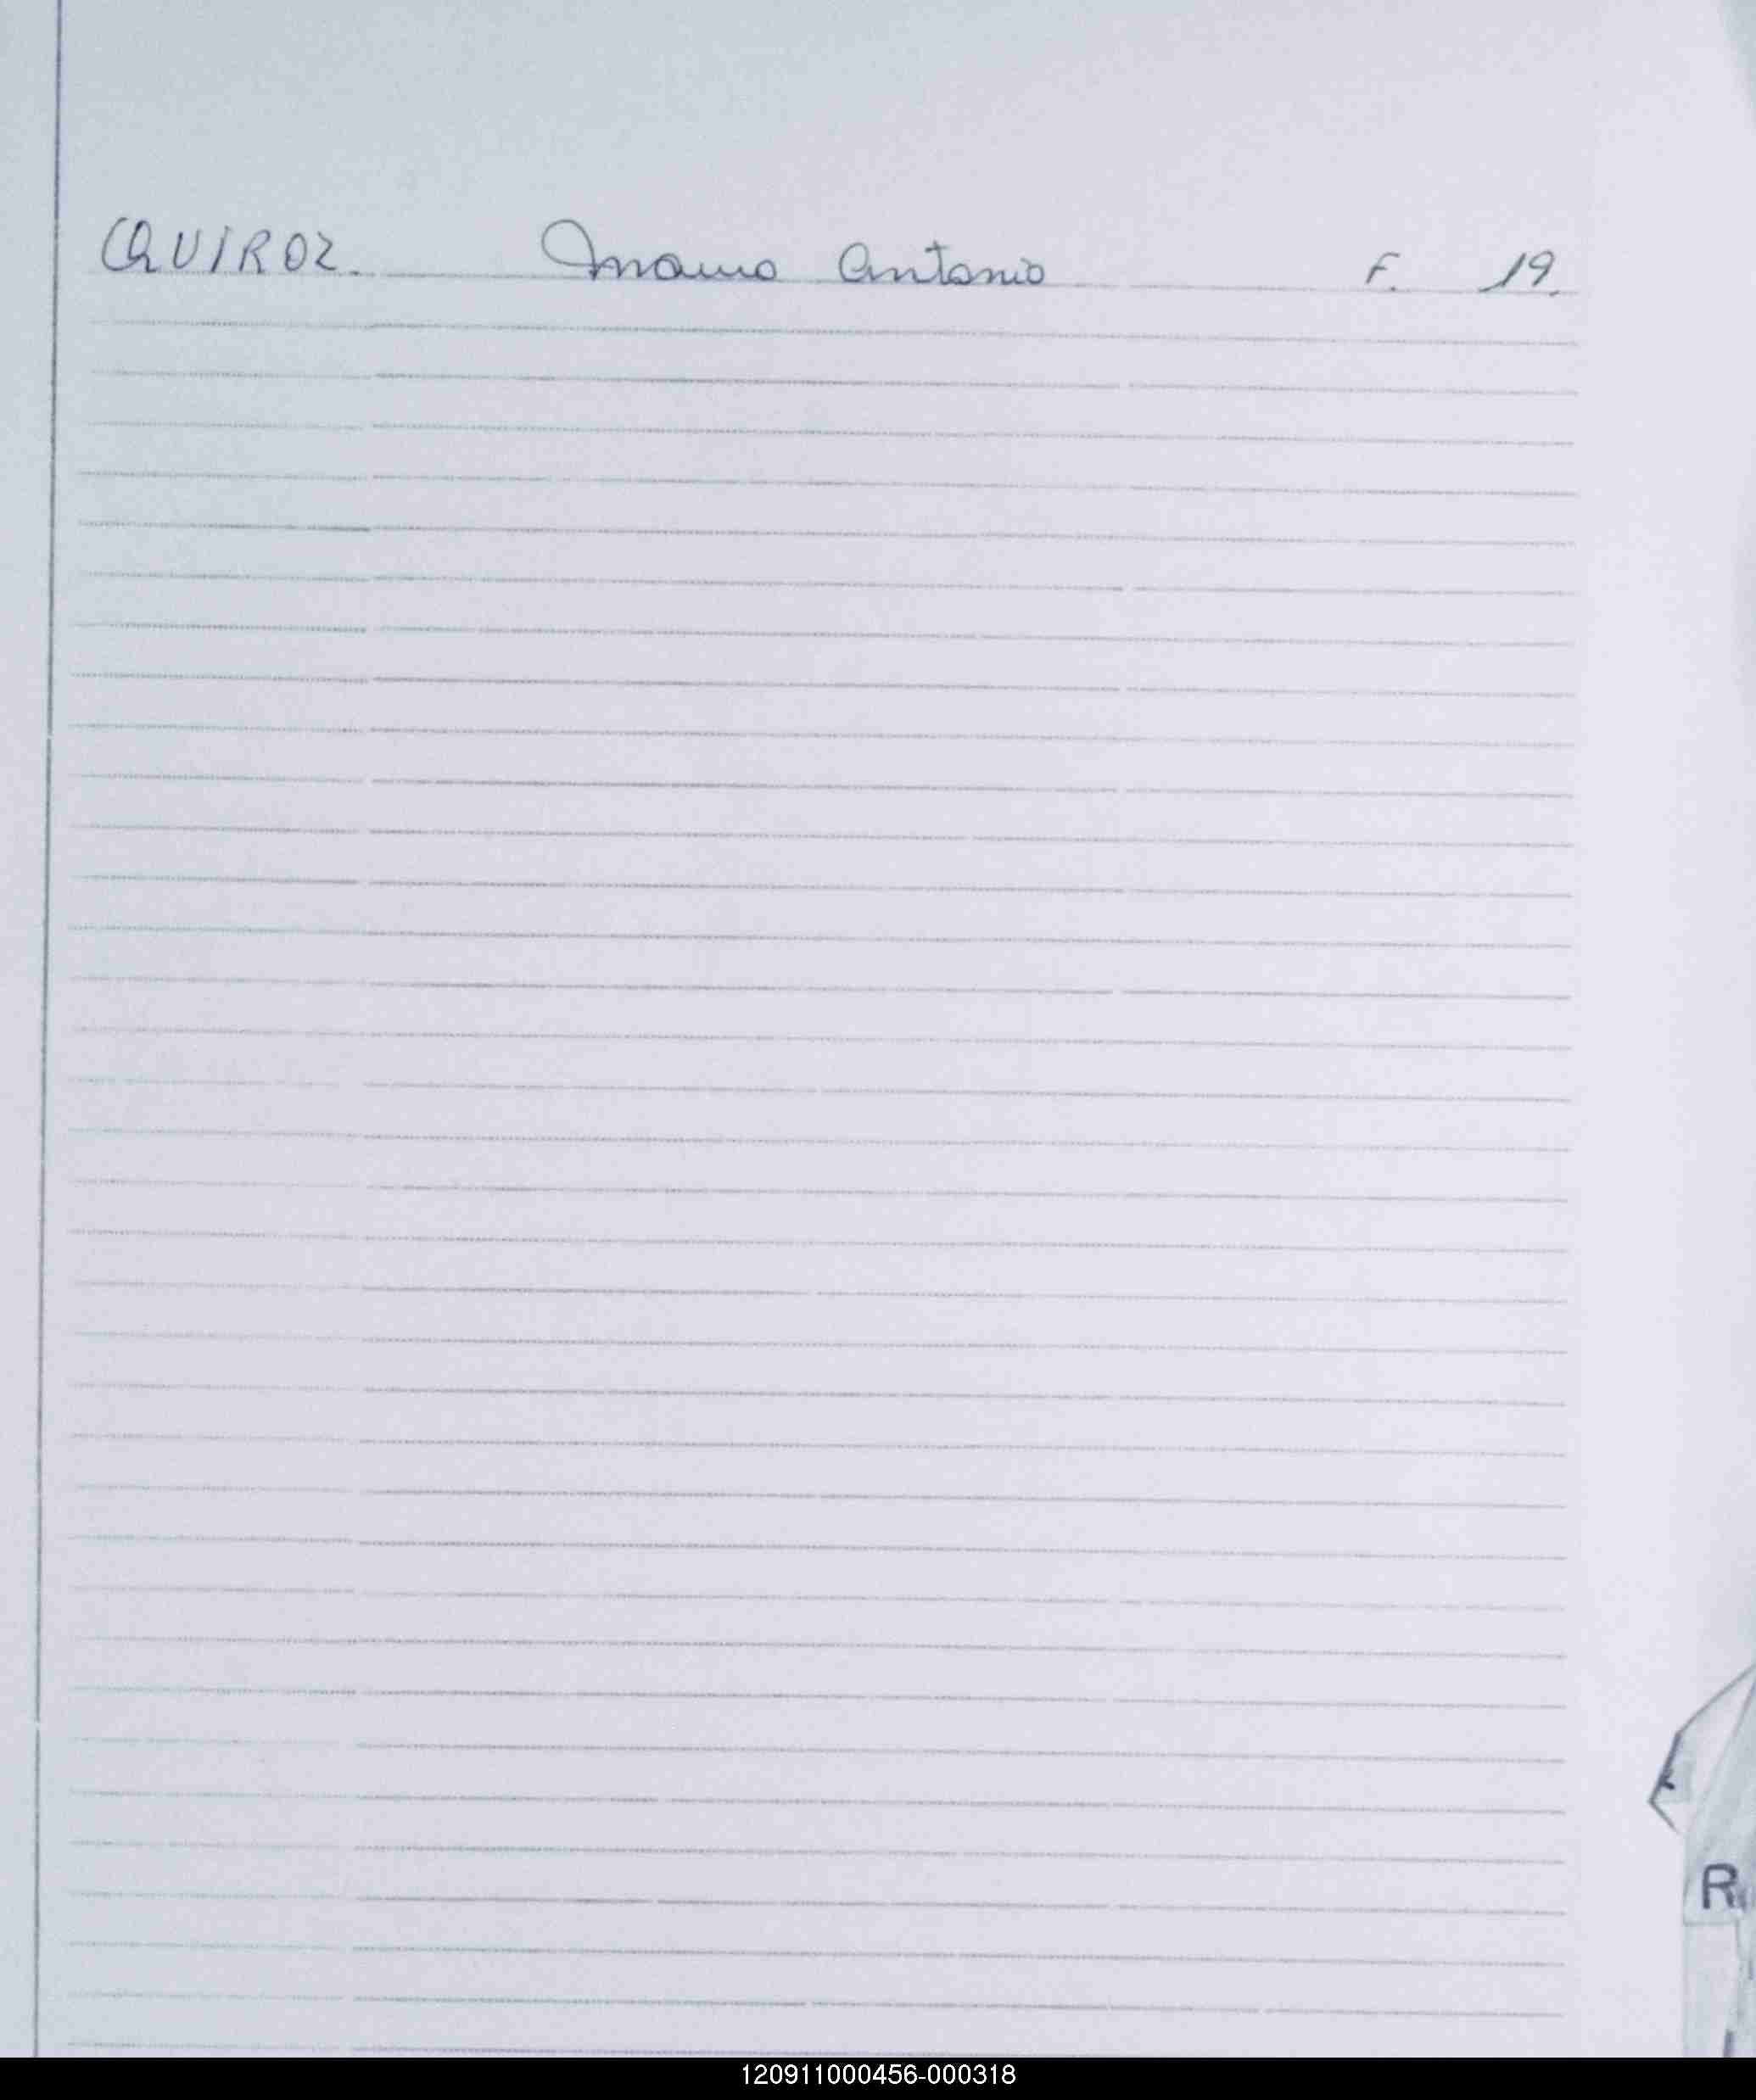 QUIROZ. Mauro Antonio F. 19.
R
120911000456-000318